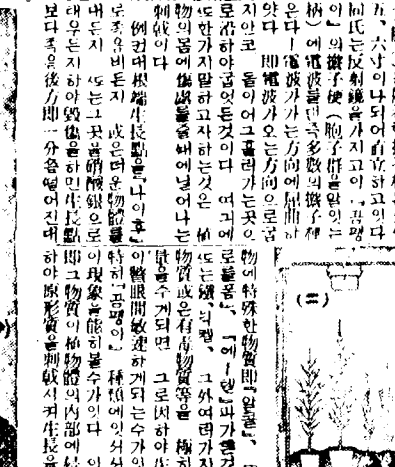 五、六寸이나되어直立하고잇다
同氏는反射鏡을가지고이 「곰팽
이」의徽子梗(胞子群을알잇는
柄)에電波를댄즉多數의徽子梗
은다ー電波가가는方向에屈曲하
얏다 即電波가오는方向으로굽
지안코 돌이어그흘러가는곳으
로沿하야굽엇든것이다 여긔에
또한가지말하고자하는것은 植
物의몸에傷處를줄때에닐어나는
刺戟이다
例컨대根端生長點을「나이후」
로족음비든지 或은더운物體를
대든지 또는그곳을硝酸銀으로
태우든지하야毀傷을하면生長點
보다족음後方即一分쯤떨어진대
(二)
物에特殊한物質即「알콜」、
로를폼」、「에ー텔」
또는鐵의 그外여러가지
物質或은有毒物質等을 極히
量을수게되면 그로因하야生
敏速하게되는수가잇
特히「곰팽이」 種類에잇서서
이現象을能히볼수가잇다 이
即그物質이植物體의內部에侵
하야原形質을刺戟시켜生長을